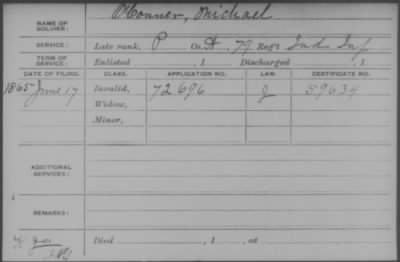 O'Conner, Michael
NAME OF SOLDIER:
SERVICE: Late rank, P Co. A, 79 Reg't Ind. Inf
TERM OF SERVICE: Enlisted , 1 Discharged , 1
DATE OF FILING. CLASS. APPLICATION NO. LAW. CERTIFICATE NO.
1865 June 17 Invalid, 72 696 J 59634
Widow,
Minor,
ADDITIONAL SERVICES:
REMARKS:
Died , 1 , at